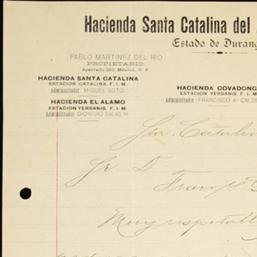 Hacienda Santa Catalina del
Estado de Durang
PABLO MARTINEZ DEL RIO
PROPIETARIO.
HACIENDA SANTA CATALINA
ESTACION CATALINA. F. I. M.
ADMINISTRADOR MIGUEL SOTO.
HACIENDA EL ALAMO
ESTACION YERBANIS. F. I. M.
ADMINISTRADOR DIONISIO SALAS M
HACIENDA COVADONG
ESTACION YERBANIS. F. I. M.
ADMINISTRADOR FRANCISCO A. CAL
Sta. Catalin
Sr. D.
Muy respetabl